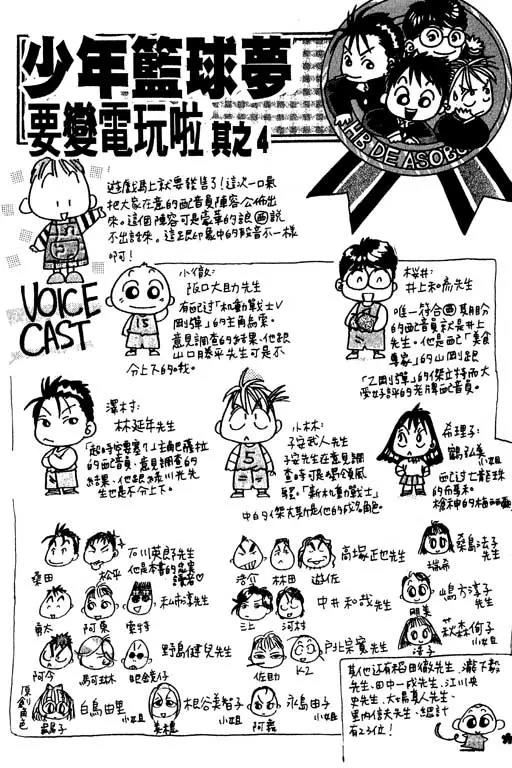 少年籃球夢
要變電玩啦 其之4
HB DE ASOBO
遊戲馬上就要發售了！這次一口氣
把大家在意的配音員陣容公佈出
來。這個陣容可是豪華的說
不出話來。這跟印象中的聲音不一樣
啊！
VOICE
CAST
小徹：
阪口大助先生
有配過「機動戰士V
鋼彈」的主角烏索。
意見調查的結果，他跟
山口勝平先生可是不
分上下的哦。
桜井：
井上和彥先生
唯一符合期盼
的配音員就是井上
先生。他是配「美食
專家」的山岡跟
「Z鋼彈」的傑立特而大
受好評的老牌配音員。
澤村：
林延年先生
的配音員，意見調查的
結果，他跟綠川光先
生也是不分上下。
小林：
子安武人先生
子安先生在意見調
查時可是獨領風
騷。「新機動戰士」
中的傑大斯是他的成名角色。
希理子：
鶴弘美小姐
配過七龍珠
的布瑪和
桑田
松平
石川英郎先生
他是本書的忠實
讀者♡
浩介
林田
遊佐
高塚正也先生
瑞希
桑島法子小姐
阿東
私市淳先生
三上
河村
中井和哉先生
明美
嶋方淳子小姐
阿今
馬可林
眼鏡仔
野島健兒先生
佐助
K2
戶北宗寬先生
秋森徇子小姐
原創角色
白鳥由里小姐
根谷美智子小姐
阿嘉
永島由子小姐
其他還有稻田徹先生、瀧下毅
先生、田中一成先生、江川央
生先生、大場真人先生、
里內信夫先生、總計
有23位！